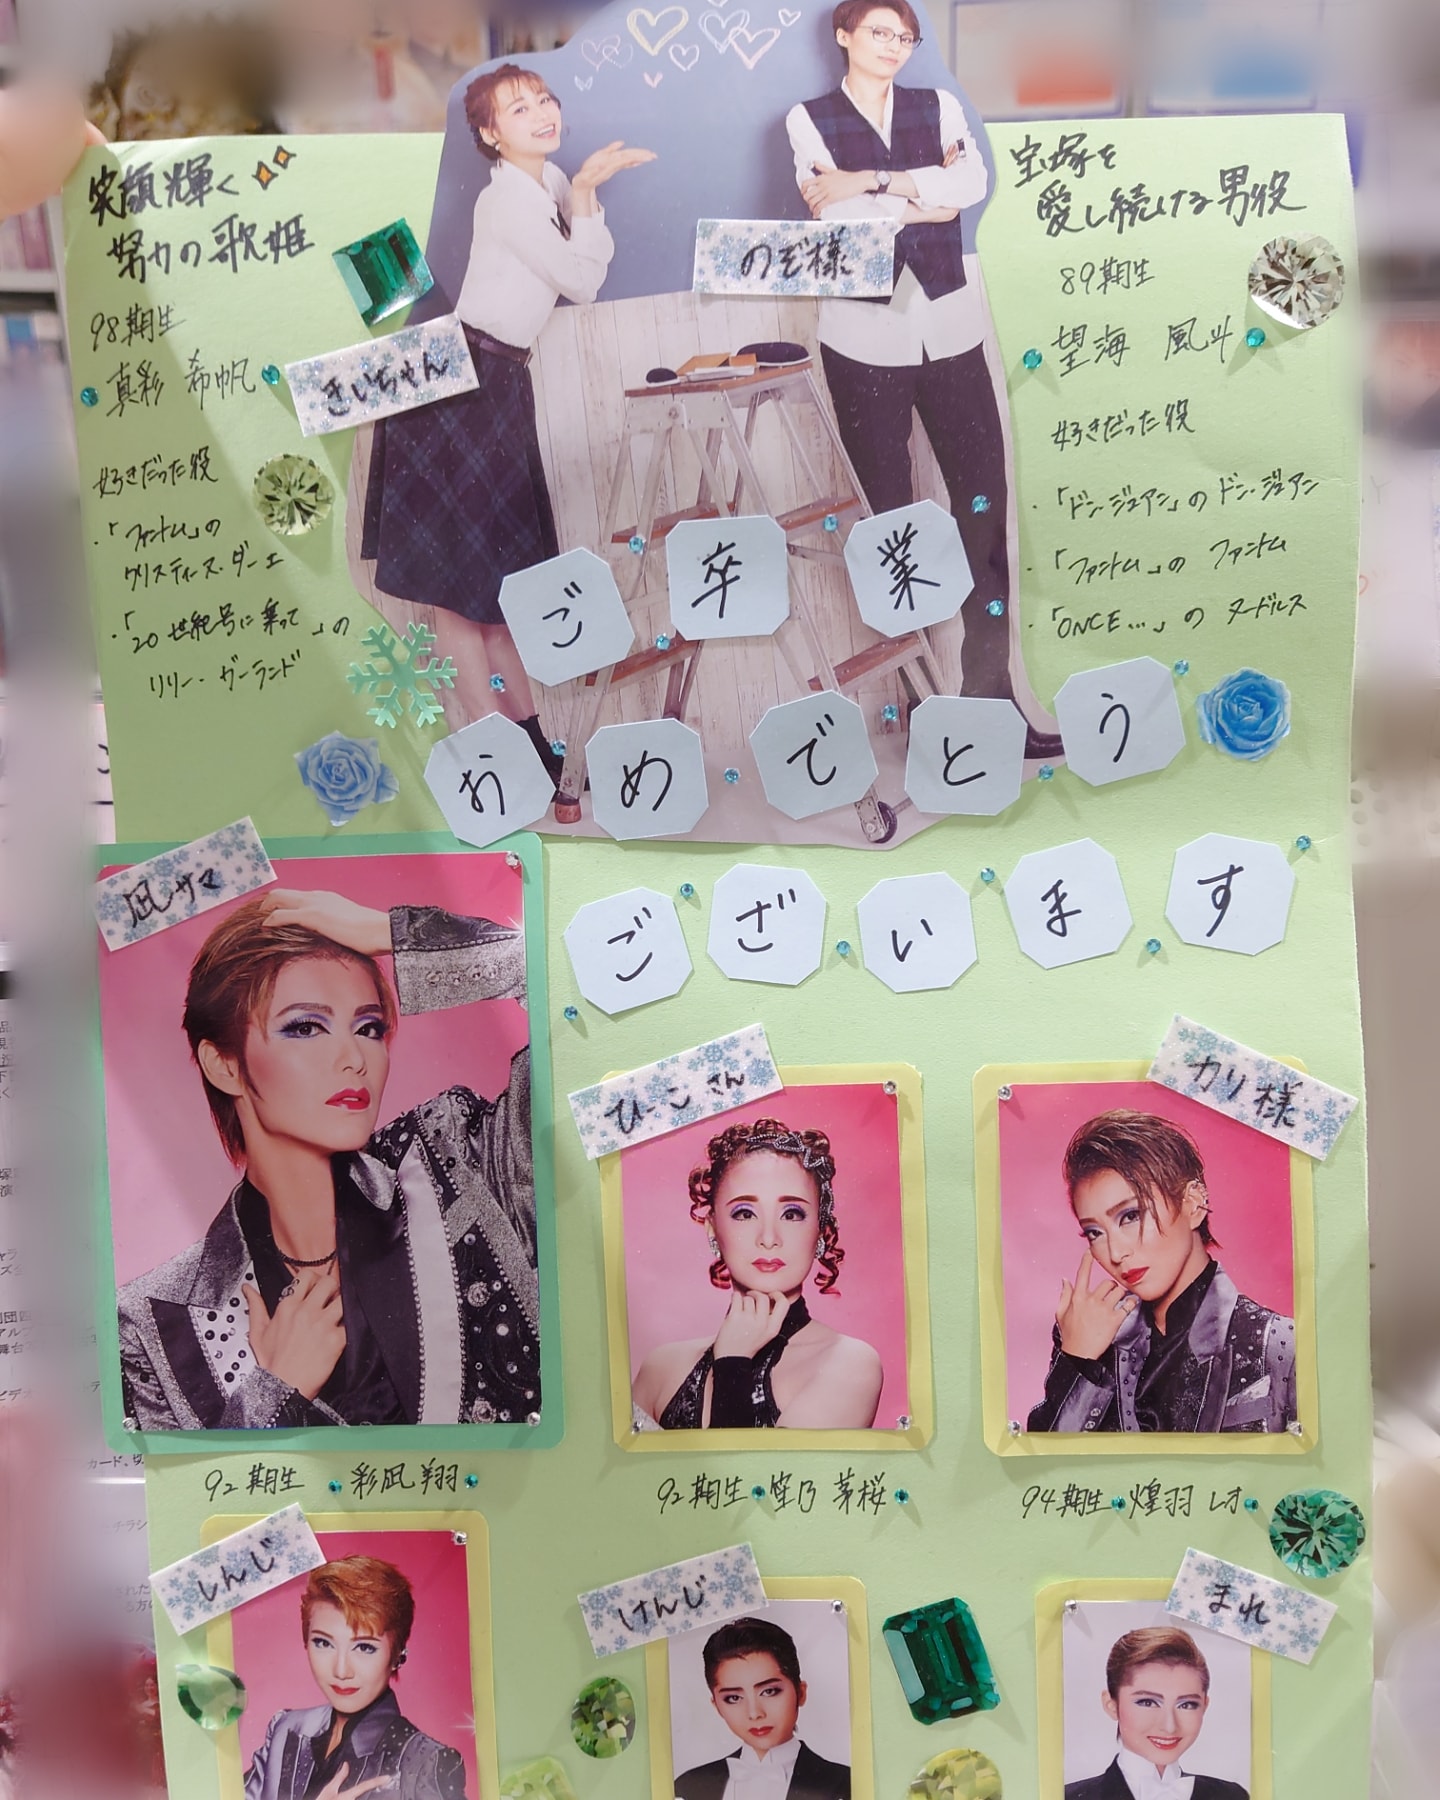 笑顔輝く
努力の歌姫
98期生
真彩 希帆
きぃちゃん
好きだった役
・「ファントム」の
クリスティーヌ・ダーエ
・「20世紀号に乗って」の
リリー・ガーランド
のぞ様
宝塚を
愛し続ける男役
89期生
望海 風斗
好きだった役
・「ドン・ジュアン」のドン・ジュアン
・「ファントム」のファントム
・「ONCE...」のヌードルス
ご卒業
おめでとう
ございます
凪サマ
ひーこさん
カリ様
92期生 彩凪翔
92期生 笙乃茅桜
94期生 煌羽レオ
しんじ
けんじ
まれ